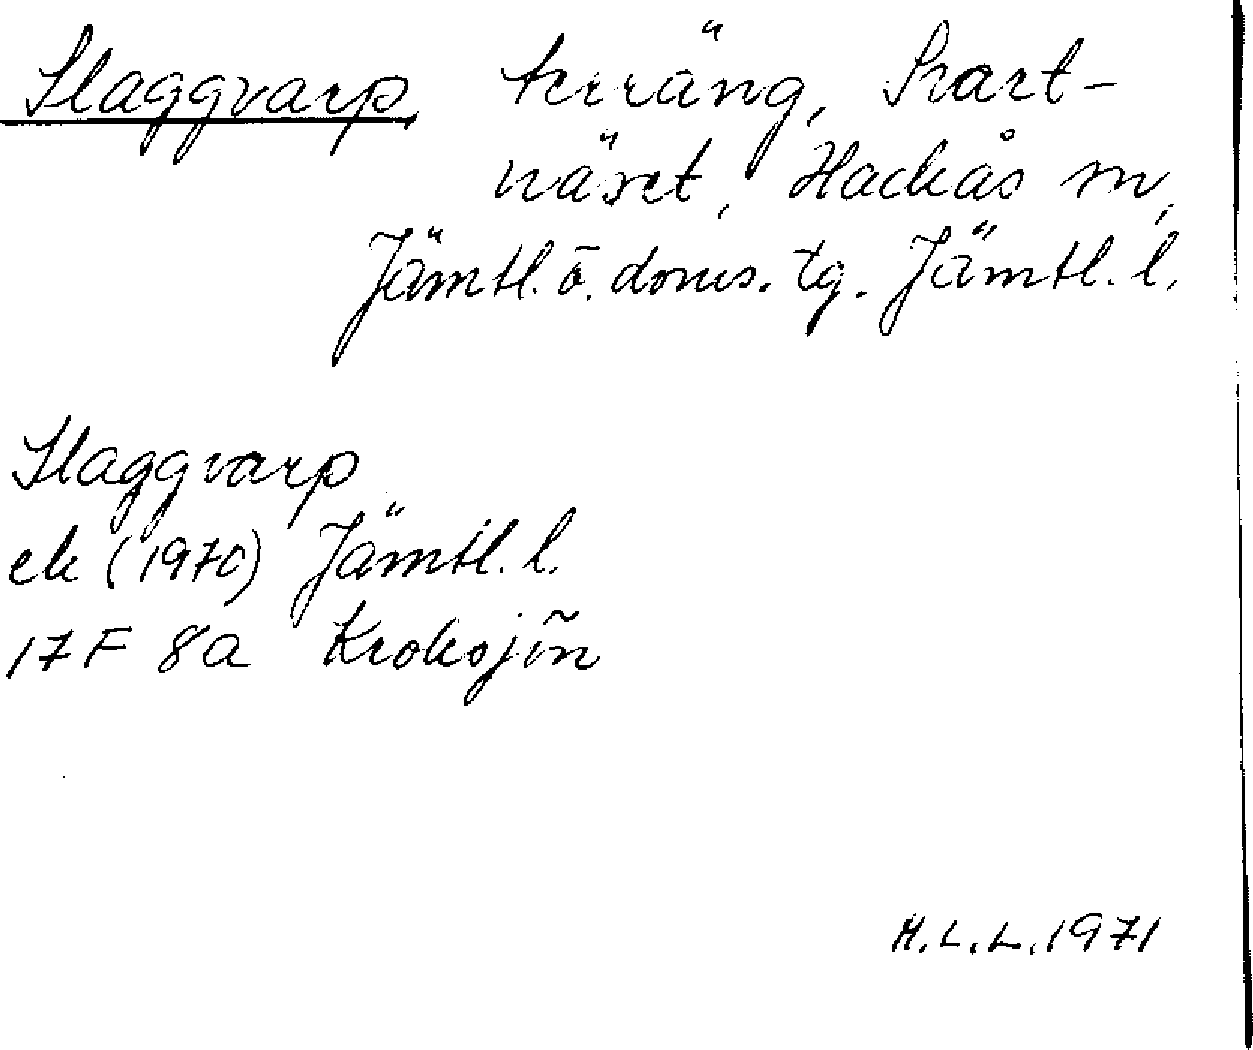 Slaggvarp, terräng, Svart-
näset, Hackås sn,
Jämtl. ö. doms. tg. Jämtl. l.
Slaggvarp
ek (1970) Jämtl. l.
17 F 8a Kroksjön
M.L.L. 1971